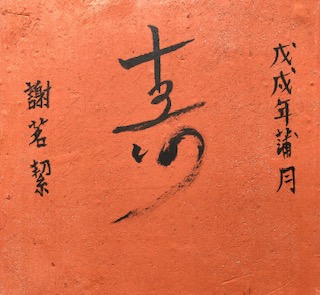 戊戌年蒲月
壽
謝茗絜